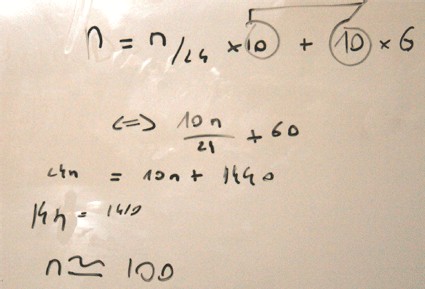 n = n/24 × 10 + 10 × 6
<=> 10n/24 + 60
24n = 10n + 1440
14n = 1440
n ≅ 100